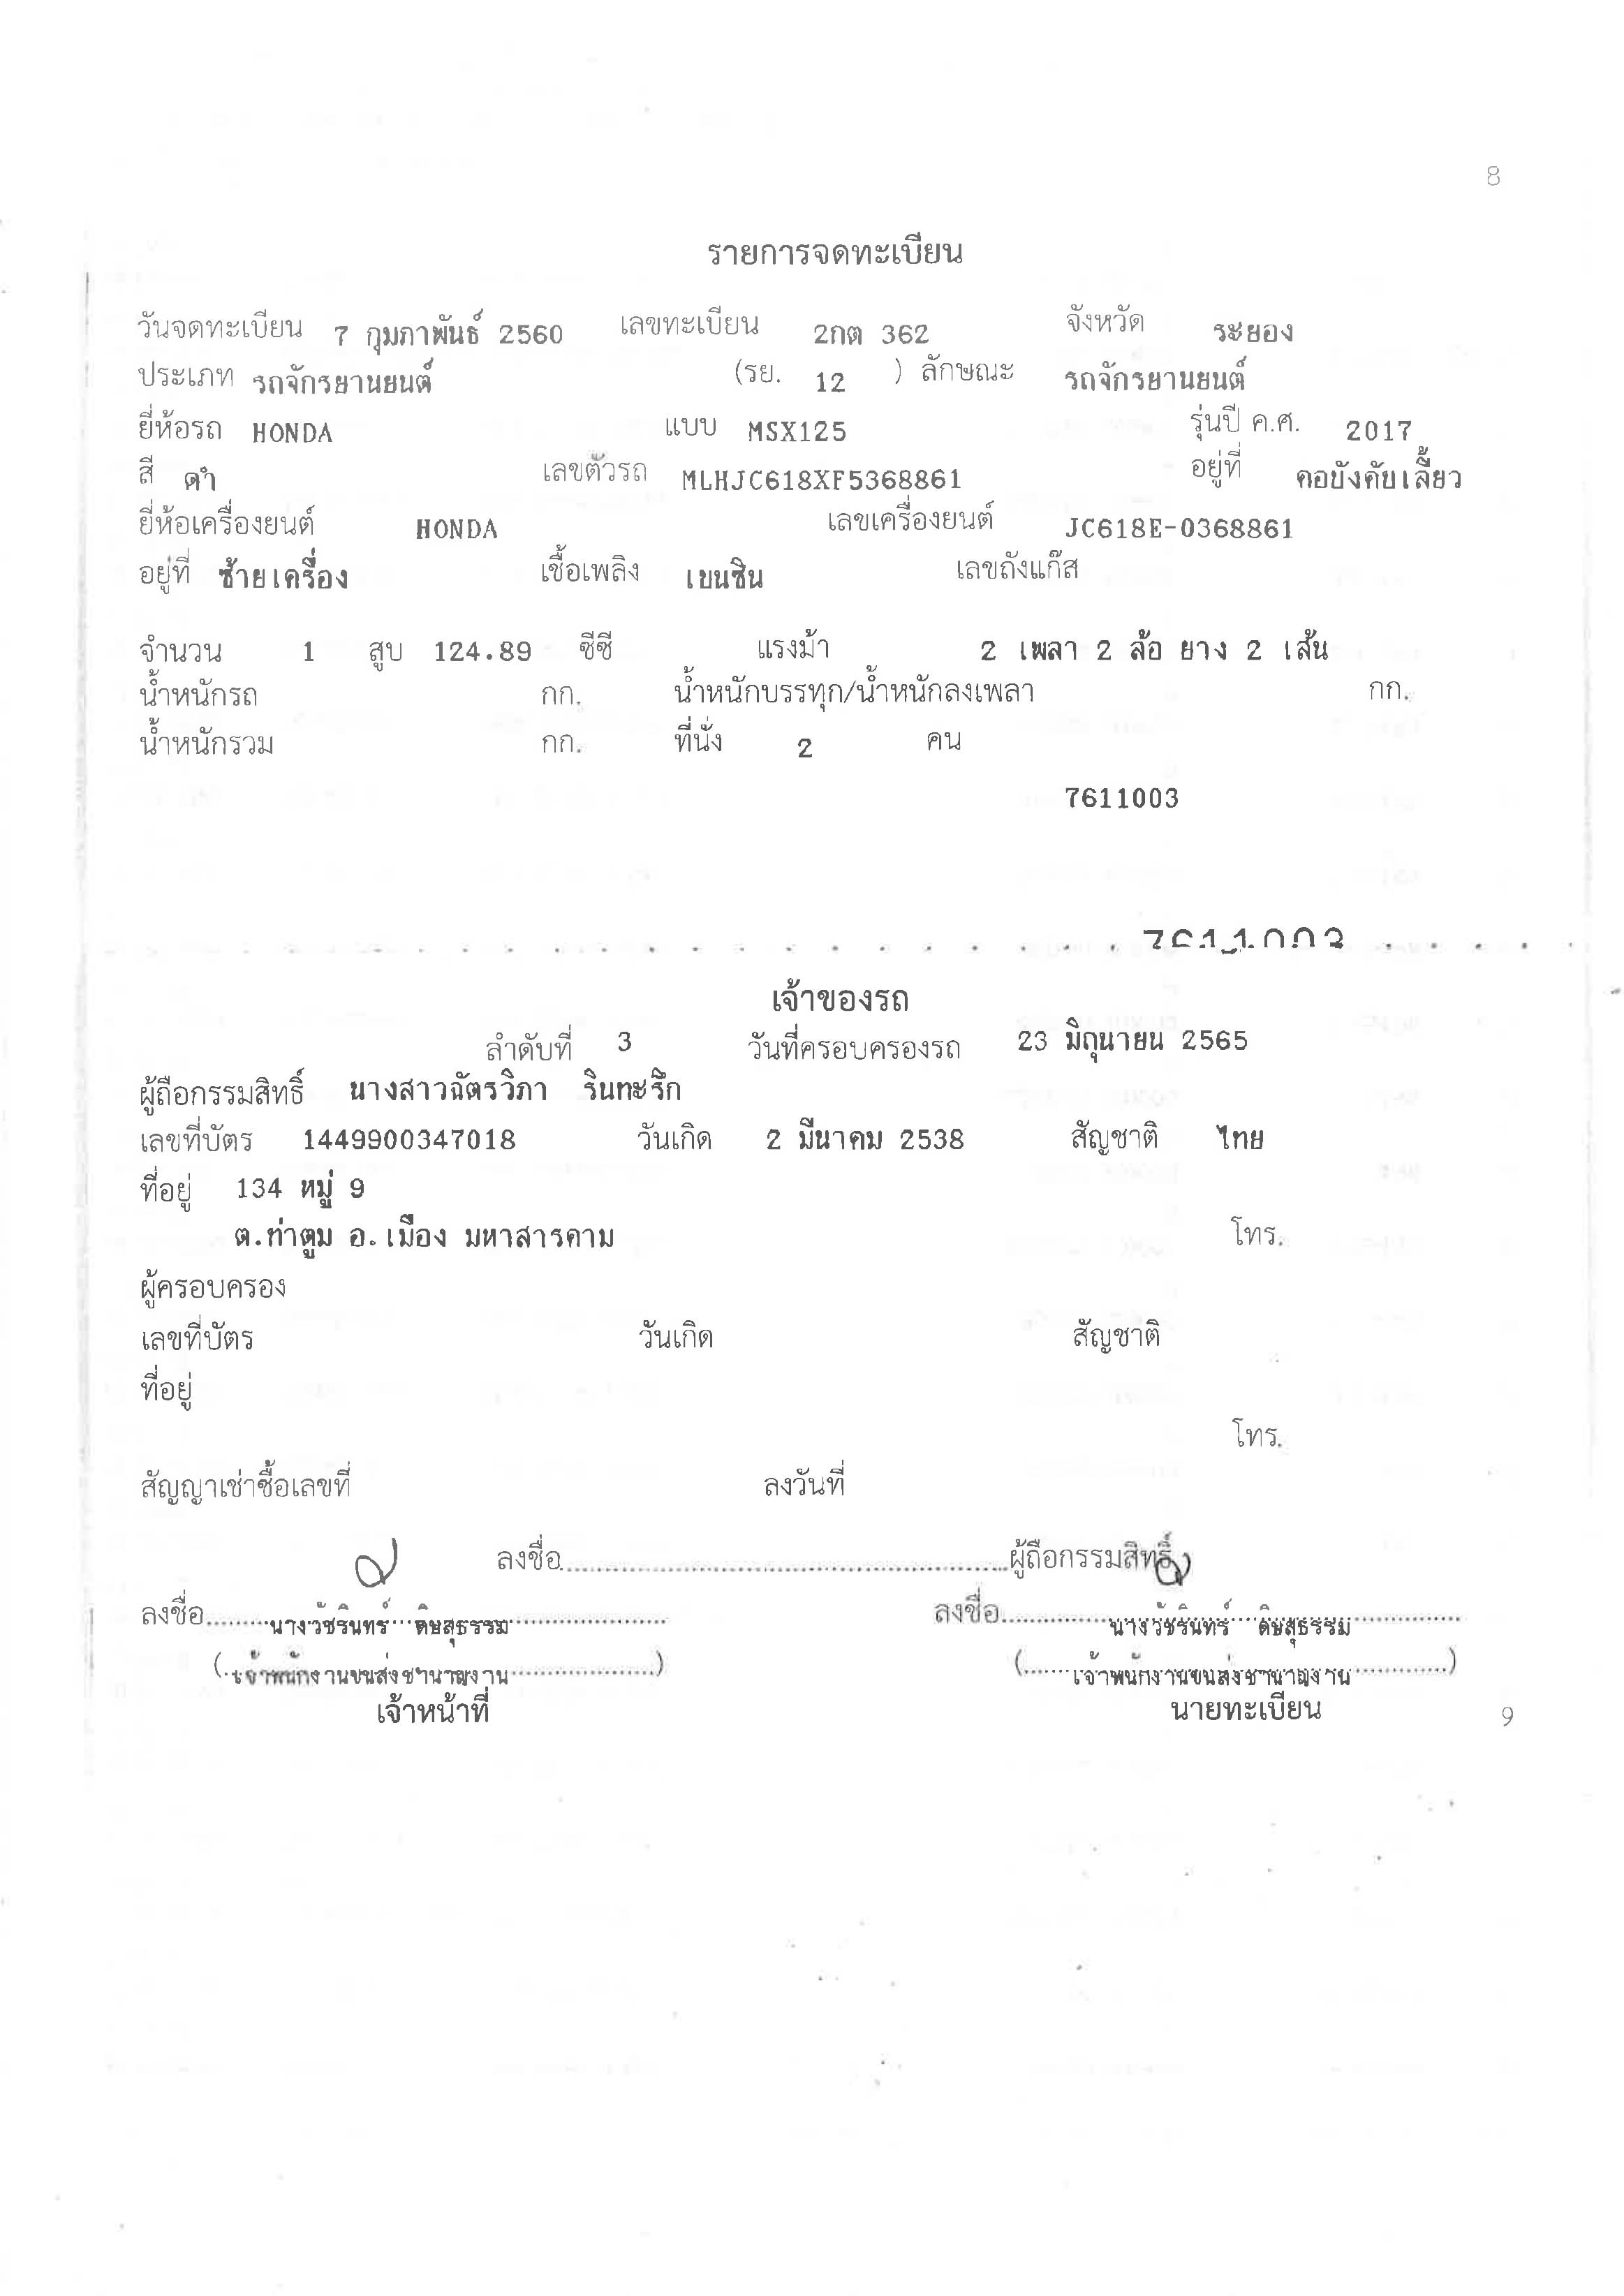 8
รายการจดทะเบียน
วันจดทะเบียน 7 กุมภาพันธ์ 2560 เลขทะเบียน 2กต 362 จังหวัด ระยอง
ประเภท รถจักรยานยนต์ (รย. 12 ) ลักษณะ รถจักรยานยนต์
ยี่ห้อรถ HONDA แบบ MSX125 รุ่นปี ค.ศ. 2017
สี ดำ เลขตัวรถ MLHJC618XF5368861 อยู่ที่ คอบังคับเลี้ยว
ยี่ห้อเครื่องยนต์ HONDA เลขเครื่องยนต์ JC618E-0368861
อยู่ที่ ซ้ายเครื่อง เชื้อเพลิง เบนซิน เลขถังแก๊ส
จำนวน 1 สูบ 124.89 ซีซี แรงม้า 2 เพลา 2 ล้อ ยาง 2 เส้น
น้ำหนักรถ กก. น้ำหนักบรรทุก/น้ำหนักลงเพลา กก.
น้ำหนักรวม กก. ที่นั่ง 2 คน
7611003
7611003
เจ้าของรถ
ลำดับที่ 3 วันที่ครอบครองรถ 23 มิถุนายน 2565
ผู้ถือกรรมสิทธิ์ นางสาวฉัตรวิภา รินทะรึก
เลขที่บัตร 1449900347018 วันเกิด 2 มีนาคม 2538 สัญชาติ ไทย
ที่อยู่ 134 หมู่ 9
ต.ท่าตูม อ.เมือง มหาสารคาม โทร.
ผู้ครอบครอง
เลขที่บัตร วันเกิด สัญชาติ
ที่อยู่
โทร.
สัญญาเช่าซื้อเลขที่ ลงวันที่
ลงชื่อ ผู้ถือกรรมสิทธิ์
ลงชื่อ นางวัชรินทร์ ดิษสุธรรม ลงชื่อ นางวัชรินทร์ ดิษสุธรรม
(เจ้าพนักงานขนส่งชำนาญงาน) (เจ้าพนักงานขนส่งชำนาญงาน)
เจ้าหน้าที่ นายทะเบียน 9